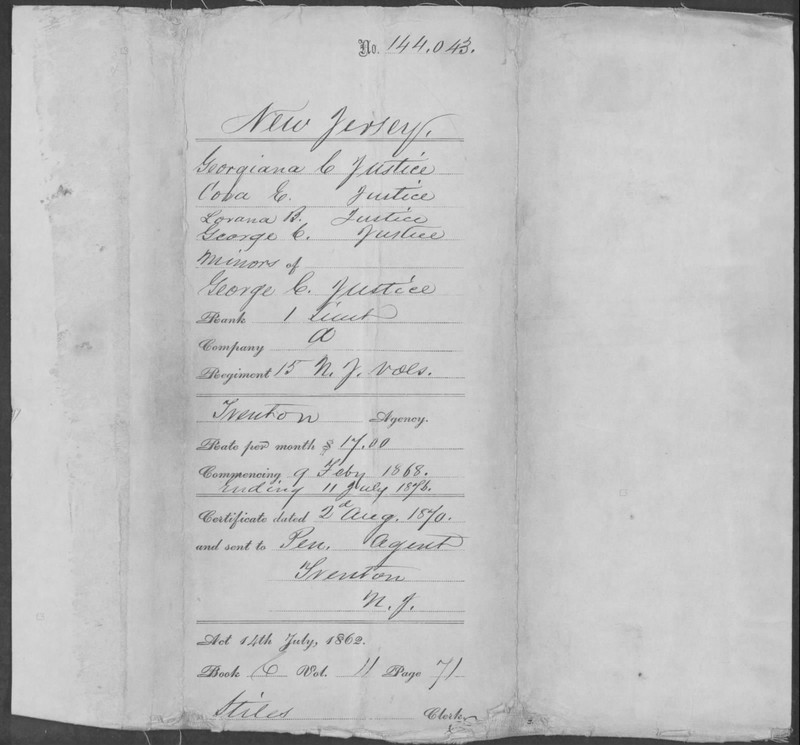 No. 144.043.
New Jersey.
Georgiana C Justice
Cora E. Justice
Lorana B. Justice
George C. Justice
Minors of
George C. Justice
Rank 1 Lieut
Company A
Regiment 15 N. J. Vols.
Trenton Agency.
Rate per month $ 17.00
Commencing 9 Feby 1868.
Ending 11 July 1876.
Certificate dated 2d Aug. 1870.
and sent to Pen. Agent
Trenton
N. J.
Act 14th July, 1862.
Book C Vol. 4 Page 71
Stiles Clerk